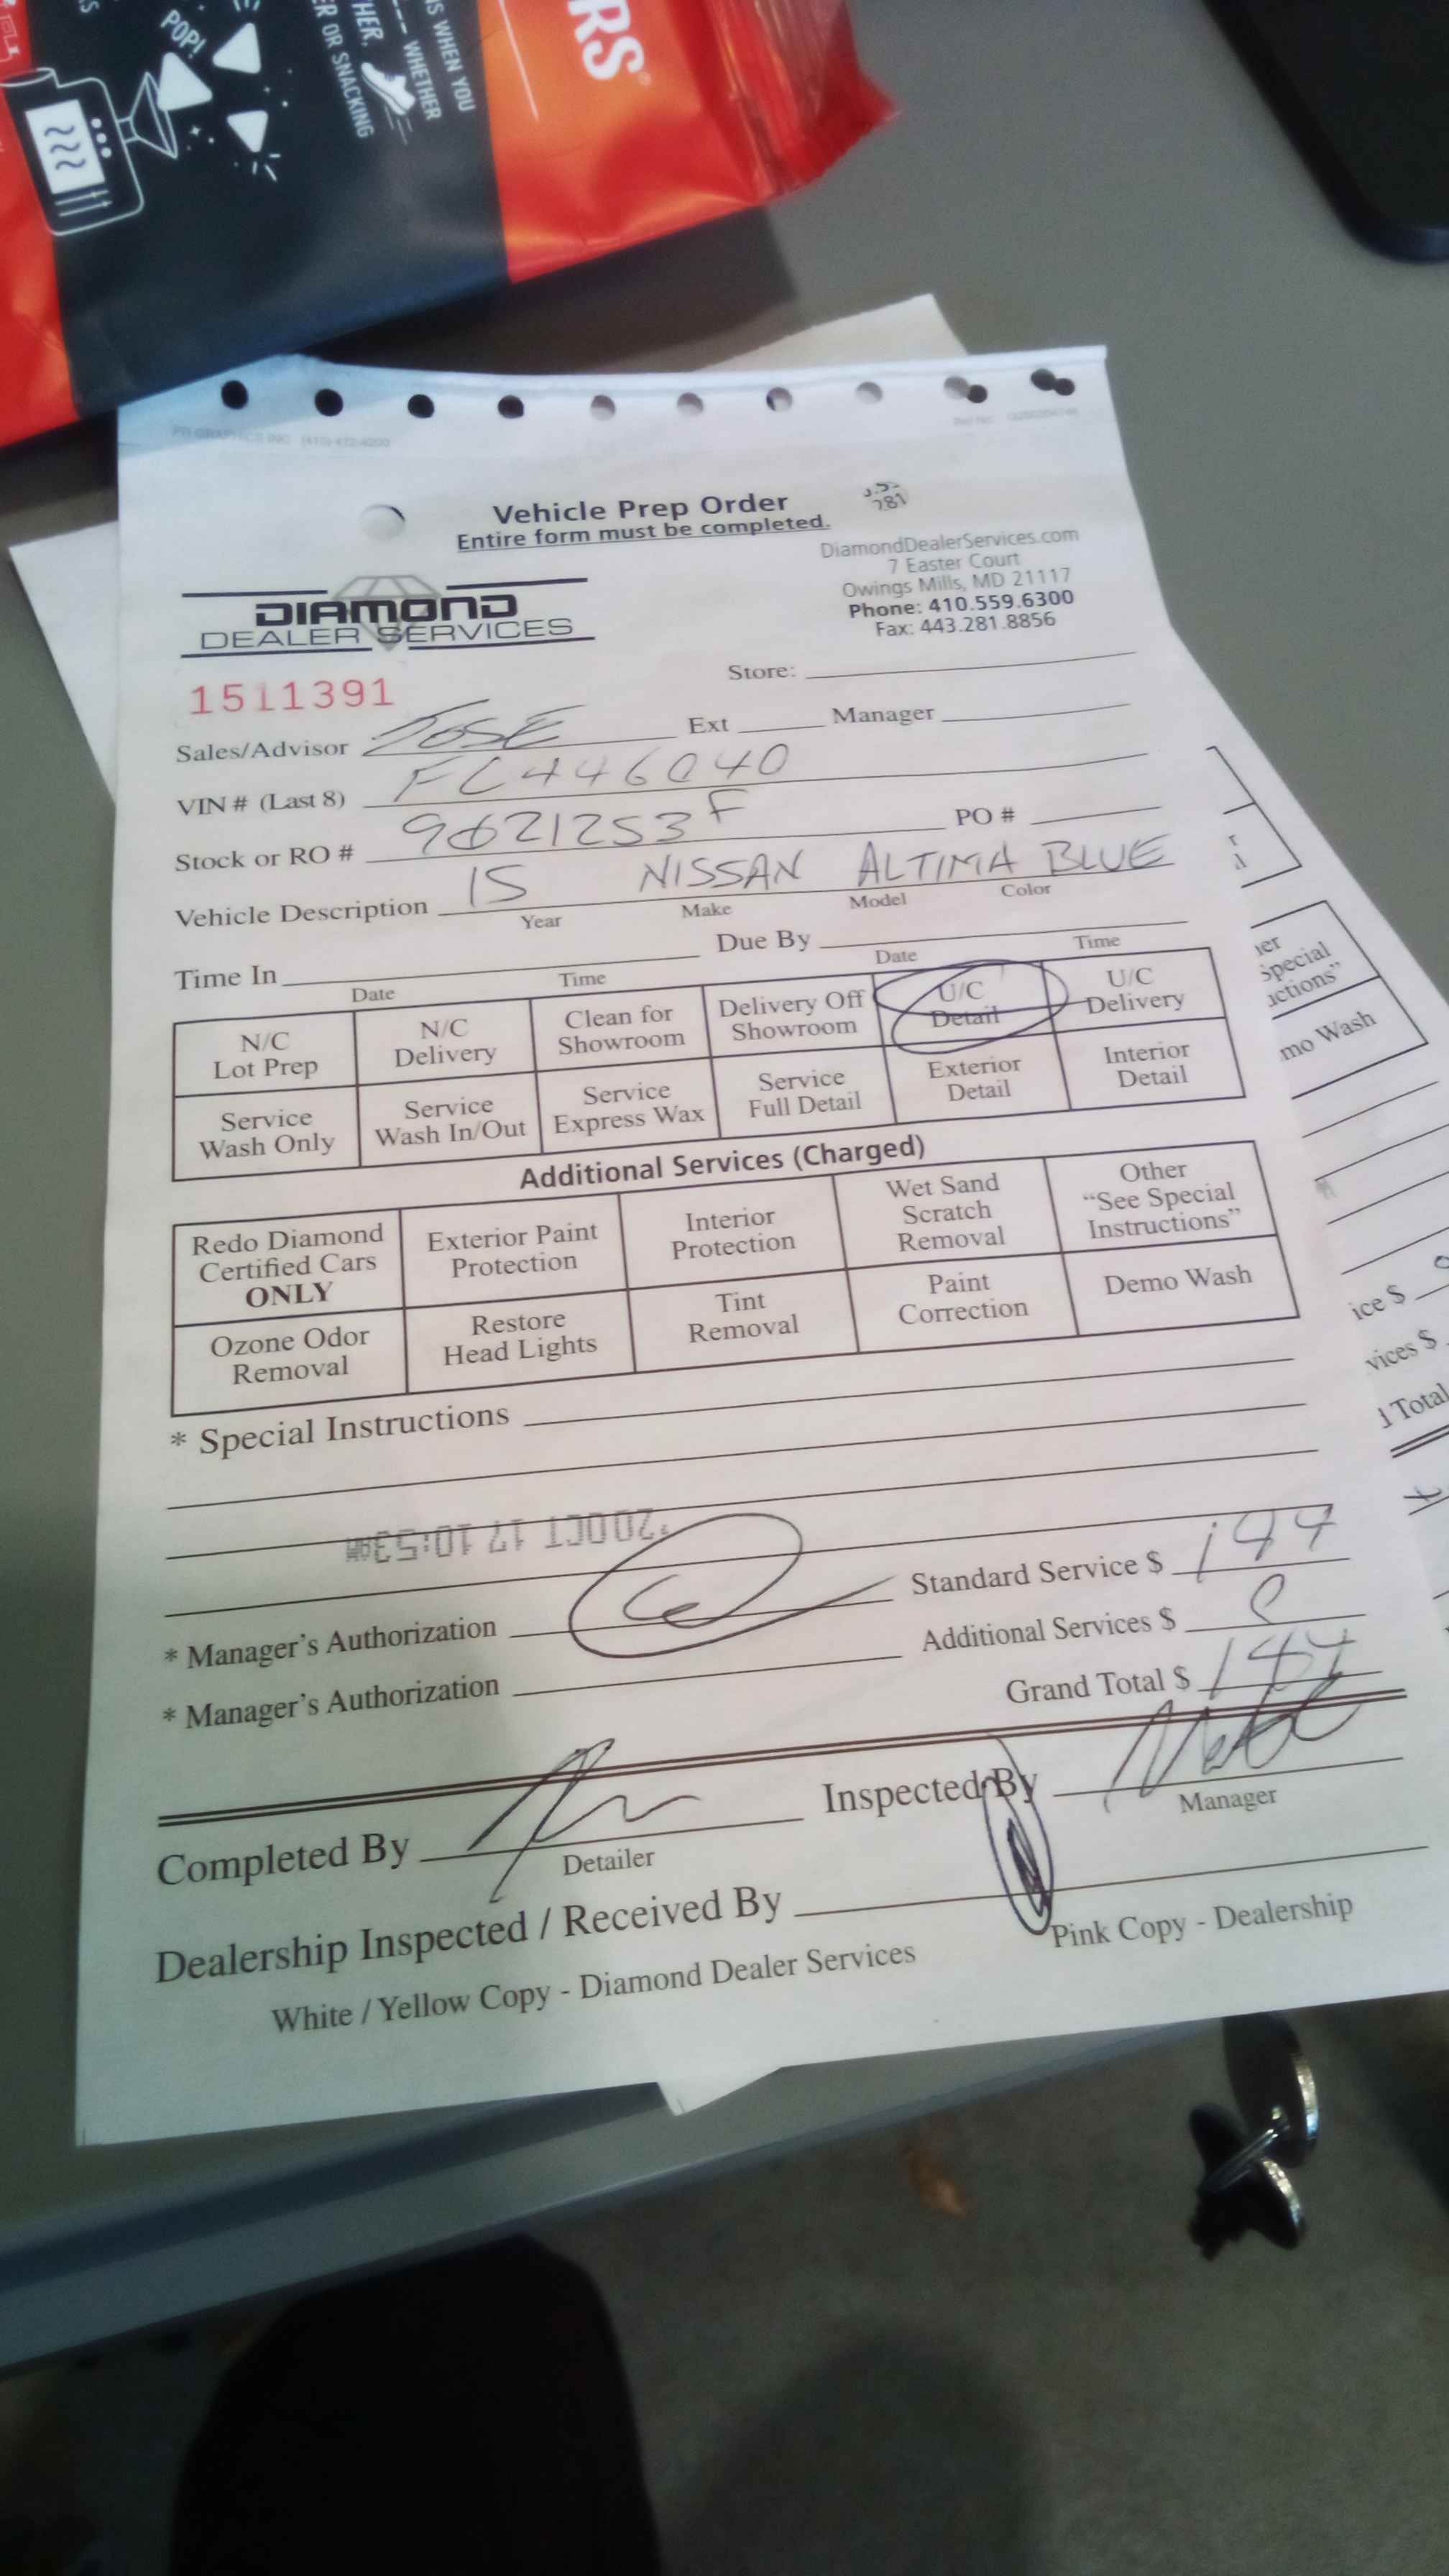 POP!
HER.
ER OR SNACKING
S WHEN YOU
--- WHETHER
RS
Vehicle Prep Order
Entire form must be completed.
281
DiamondDealerServices.com
7 Easter Court
Owings Mills, MD 21117
Phone: 410.559.6300
Fax: 443.281.8856
DIAMOND
DEALER SERVICES
1511391
Store:
Sales/Advisor JOSE Ext Manager
VIN # (Last 8) FC446040
Stock or RO # 9621253F PO #
Vehicle Description 15 NISSAN ALTIMA BLUE
Year Make Model Color
Time In Due By
Date Time Date Time
N/C Lot Prep
N/C Delivery
Clean for Showroom
Delivery Off Showroom
U/C Detail
U/C Delivery
Service Wash Only
Service Wash In/Out
Service Express Wax
Service Full Detail
Exterior Detail
Interior Detail
Additional Services (Charged)
Redo Diamond Certified Cars ONLY
Exterior Paint Protection
Interior Protection
Wet Sand Scratch Removal
Other "See Special Instructions"
Ozone Odor Removal
Restore Head Lights
Tint Removal
Paint Correction
Demo Wash
* Special Instructions
'20 OCT 17 10:53AM
* Manager's Authorization Standard Service $ 144
* Manager's Authorization Additional Services $ 0
Grand Total $ 144
Completed By Inspected By
Detailer Manager
Dealership Inspected / Received By
White / Yellow Copy - Diamond Dealer Services Pink Copy - Dealership
her
Special
uctions"
mo Wash
ice $
vices $
d Total